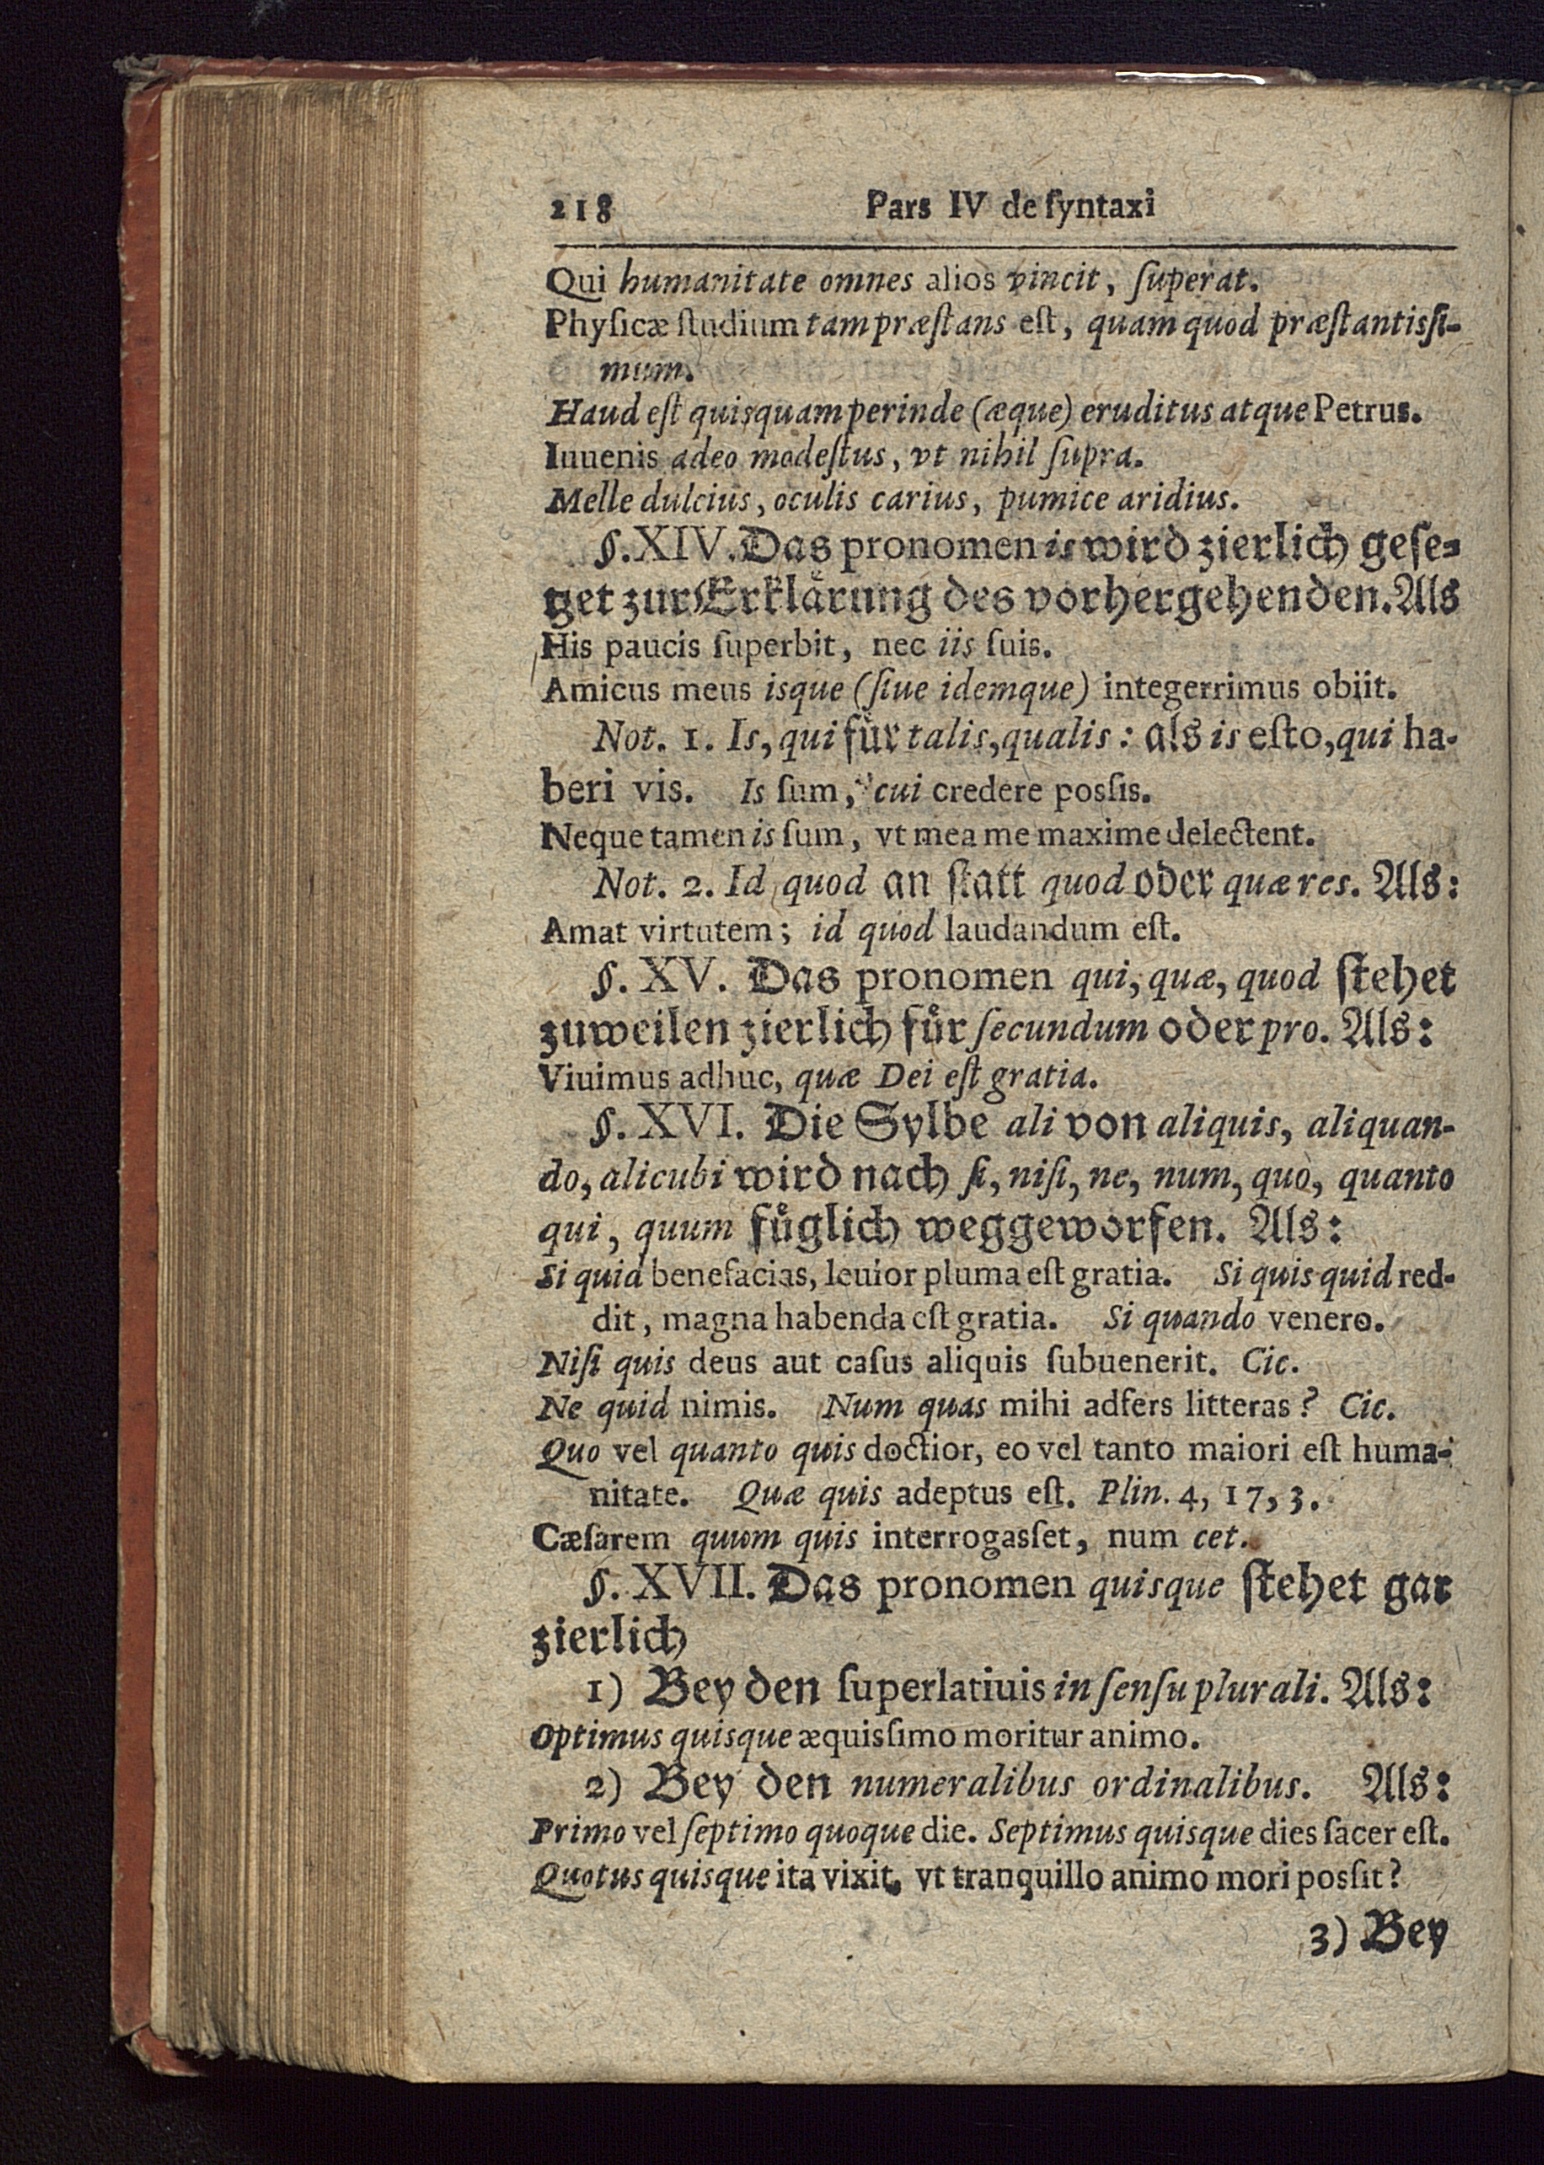 218 Pars IV de ſyntaxi
Qui humanitate omnes alios vincit, ſuperat.
Phyſicæ ſtudium tam præſtans eſt, quam quod præſtantisſi-
mum.
Haud eſt quisquam perinde (æque) eruditus atque Petrus.
Iuuenis adeo modeſtus, vt nihil ſupra.
Melle dulcius, oculis carius, pumice aridius.
§. XIV. Das pronomen is wird zierlich geſe-
tzet zur Erklaͤrung des vorhergehenden. Als
His paucis ſuperbit, nec iis ſuis.
Amicus meus isque (ſiue idemque) integerrimus obiit.
Not. 1. Is, qui fuͤr talis, qualis: als is eſto, qui ha-
beri vis. Is ſum, cui credere posſis.
Neque tamen is ſum, vt mea me maxime delectent.
Not. 2. Id quod an ſtatt quod oder quæ res. Als:
Amat virtutem; id quod laudandum eſt.
§. XV. Das pronomen qui, quæ, quod ſtehet
zuweilen zierlich fuͤr ſecundum oder pro. Als:
Viuimus adhuc, quæ Dei eſt gratia.
§. XVI. Die Sylbe ali von aliquis, aliquan-
do, alicubi wird nach ſi, niſi, ne, num, quo, quanto
qui, quum fuͤglich weggeworfen. Als:
Si quid benefacias, leuior pluma eſt gratia. Si quis quid red-
dit, magna habenda eſt gratia. Si quando venero.
Niſi quis deus aut caſus aliquis ſubuenerit. Cic.
Ne quid nimis. Num quas mihi adfers litteras? Cic.
Quo vel quanto quis doctior, eo vel tanto maiori eſt huma-
nitate. Quæ quis adeptus eſt. Plin. 4, 17, 3.
Cæſarem quum quis interrogasſet, num cet.
§. XVII. Das pronomen quisque ſtehet gar
zierlich
1) Bey den ſuperlatiuis in ſenſu plurali. Als:
Optimus quisque æquisſimo moritur animo.
2) Bey den numeralibus ordinalibus. Als:
Primo vel ſeptimo quoque die. Septimus quisque dies ſacer eſt.
Quotus quisque ita vixit, vt tranquillo animo mori posſit?
3) Bey